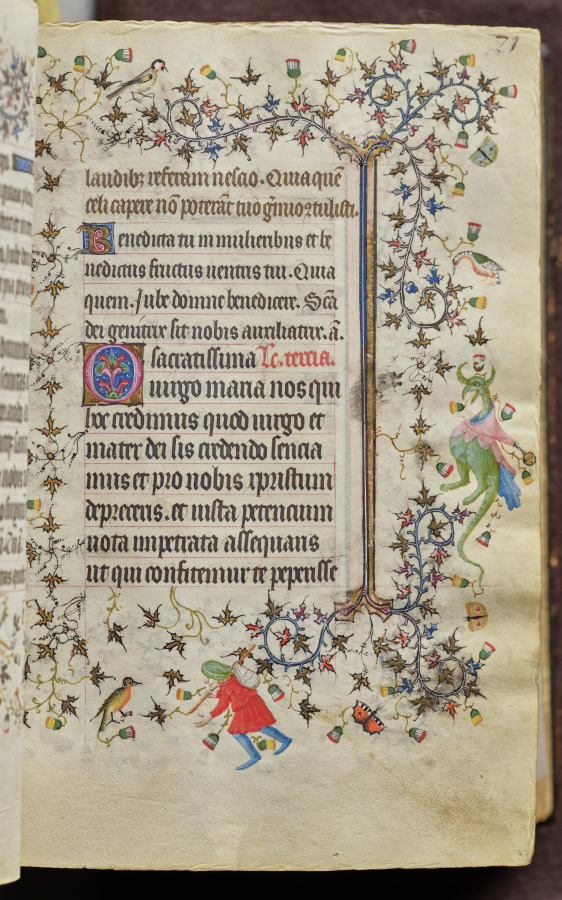 78
laudibꝫ referam nescio. Quia quē
celi capere nō poterāt tuo gͥmio ꝯtulisti.
Benedicta tu in mulieribus et be
nedictus fructus uentris tui. Quia
quem. Jube domne benedicere. Scā
dei genitrix sit nobis auxiliatrix. a.
O sacratissima Lc. tercia.
uirgo maria nos qui
hoc credimus quod uirgo et
mater dei sis credendo sencia
mus et pro nobis xpristum
depreceris. et iusta petencium
uota impetrata assequaris
ut qui confitemur te peperisse